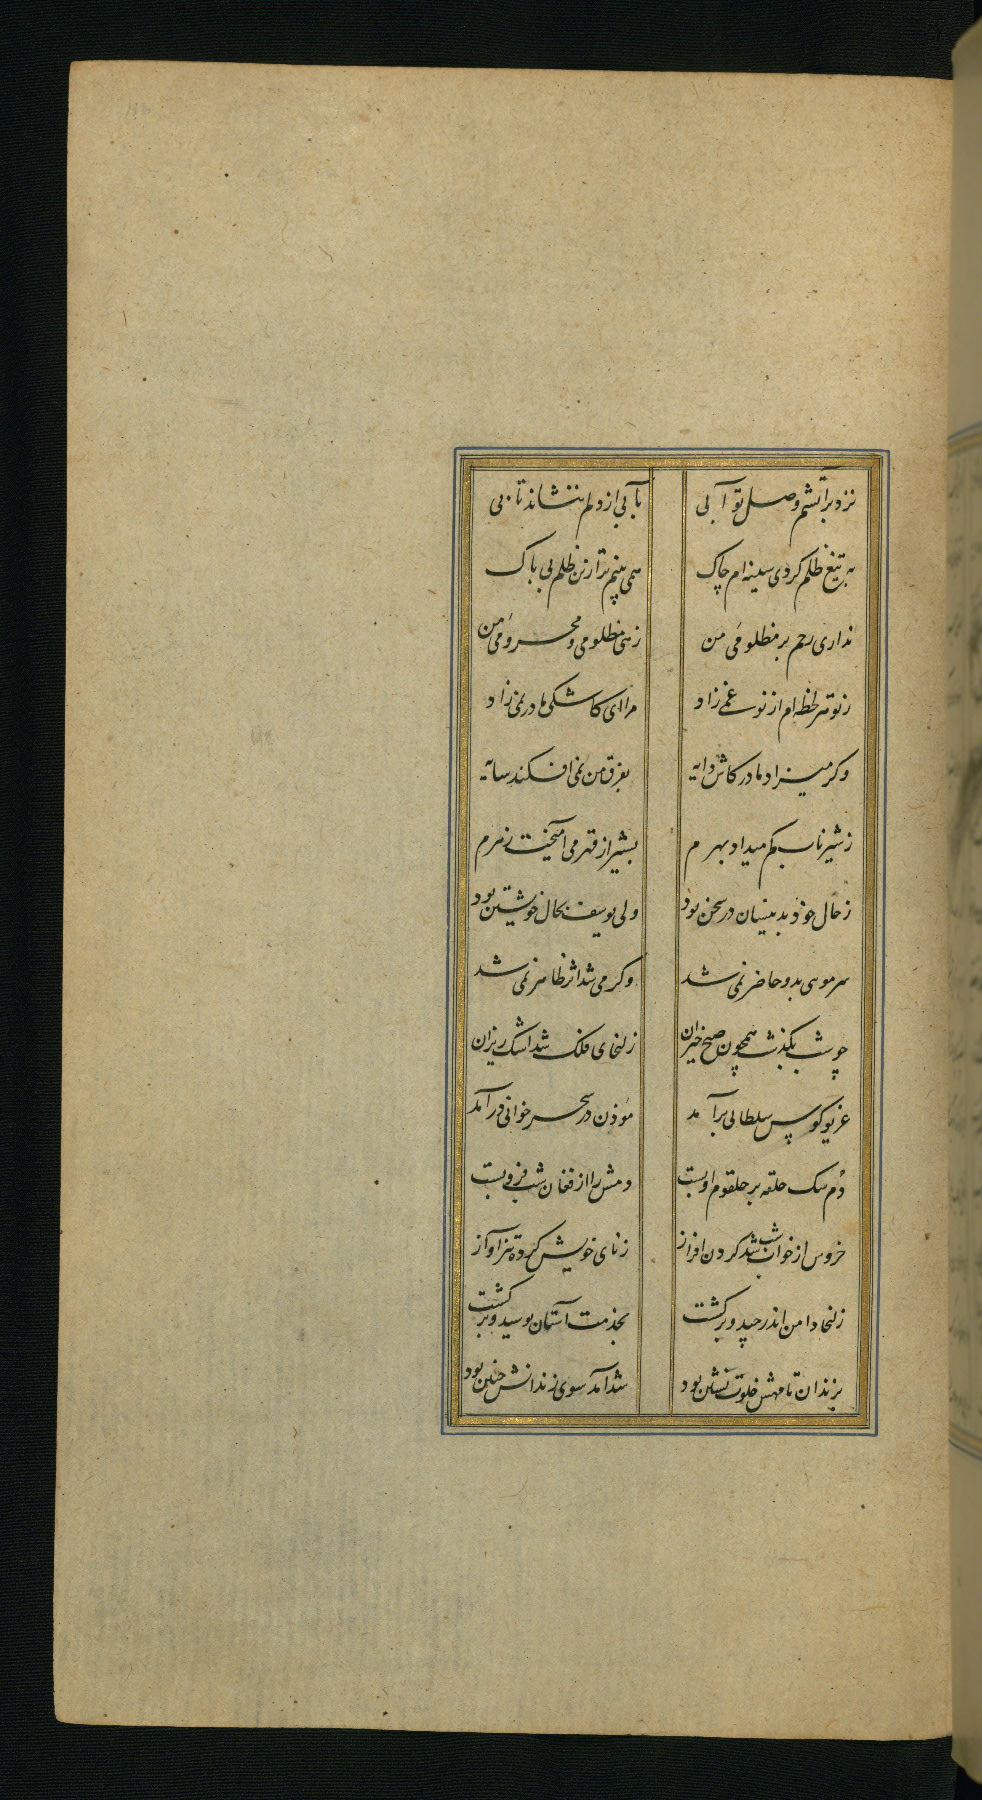 نزد بر آتشم وصل تو آبی بآبی از دلم ننشاند تابی
به تیغ ظلم کردی سینه‌ام چاک همی بینم ترا زین ظلم بی باک
نداری رحم بر مظلومی من زهی مظلومی و محرومی من
ز تو هر لحظه‌ام از نو غمی زاد مرا ای کاشکی مادر نمی زاد
وگر میزاد مادر کاش دایه بفرق من نمی افکند سایه
ز شیر ناب کم میداد بهرم بشیر از قهر می آمیخت زهرم
ز حال خود بدینسان در سخن بود ولی یوسف بحال خویشتن بود
سر مویی بدو حاضر نمی شد وگر می شد اثر ظاهر نمی شد
چو شب بگذشت همچون صبح خیزان زلیخای فلک شد اشک ریزان
غریو کوس سلطانی برآمد مؤذن در سحر خوانی درآمد
دم سگ حلقه بر حلقوم او بست دمش را از فغان شب فرو بست
خروس از خواب شب شد گردن افراز ز نای خویش کرده تیز آواز
زلیخا دامن اندر چید و برگشت بخدمت آستان بوسید و برگشت
بزندان تا مهش خلوت نشین بود شد آمد سوی زندانش چنین بود